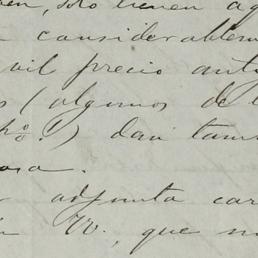 solo tienen
considerablem
vil precio ant
(algunos de
dan tam
osa.
adjunta car
VV., que